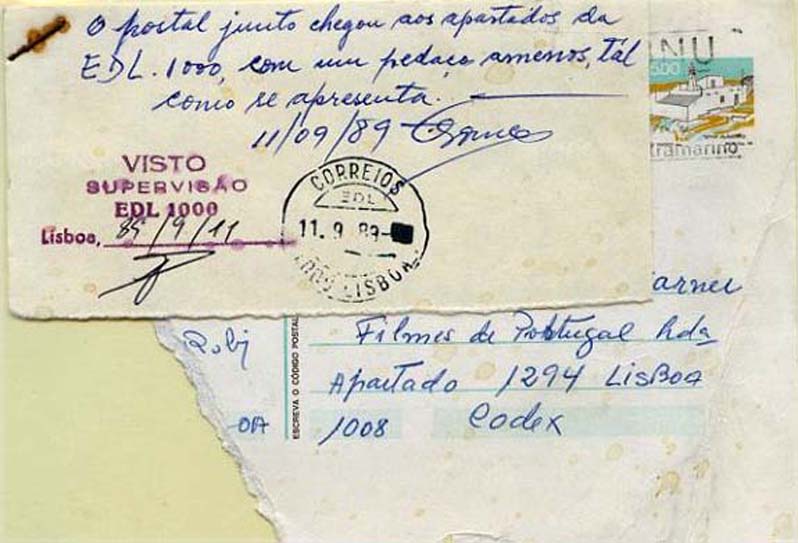 O postal junto chegou aos apartados da
EDL.1000, com um pedaço amenos, tál
como se apresenta.
11/09/89
VISTO
SUPERVISÃO
EDL 1000
Lisboa, 89/9/11
CORREIOS
EDL
11. 9. 89
1000 LISBOA
NU
5.00
tramarino
arner
Filmes de Portugal Lda
Apartado 1294 LISBOA
1008 Codex
ESCREVA O CÓDIGO POSTAL